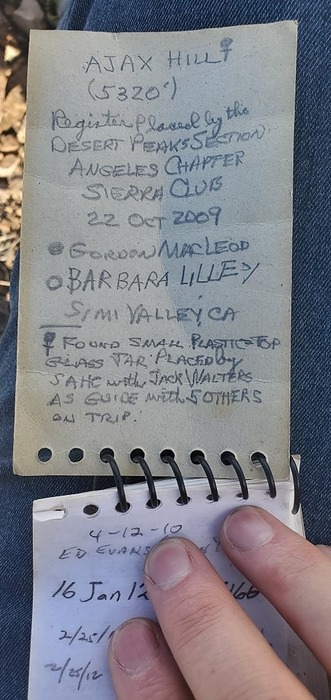 AJAX HILL
(5320')
Register placed by the
DESERT PEAKS SECTION
ANGELES CHAPTER
SIERRA CLUB
22 OCT 2009
GORDON MACLEOD
BARBARA LILLEY
SIMI VALLEY, CA
FOUND SMALL PLASTIC-TOP
GLASS JAR PLACED by
SAHC with JACK WALTERS
AS GUIDE with 5 OTHERS
ON TRIP.
4-12-10
ED EVANS
16 Jan 12
2/25/12